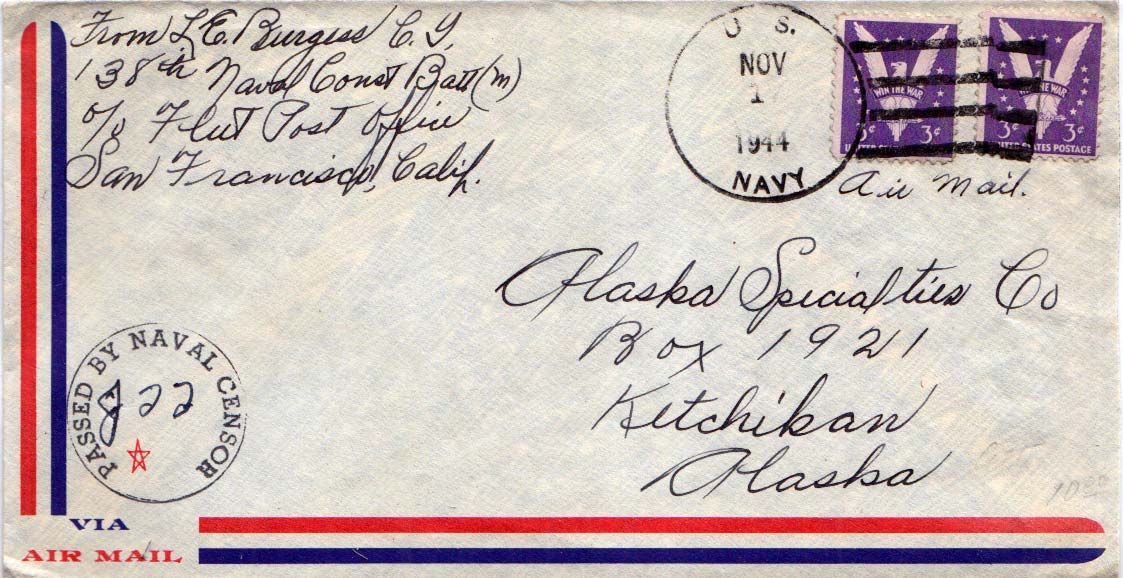 From L. E. Burgess C. Y.
138th Naval Const Batt (m)
c/o Fleet Post Office
San Francisco, Calif.
U. S.
NOV
1
1944
NAVY
WIN THE WAR
3¢ 3¢
UNITED STATES POSTAGE
WIN THE WAR
3¢ 3¢
UNITED STATES POSTAGE
Air Mail.
Alaska Specialties Co
Box 1921
Ketchikan
Alaska
PASSED BY NAVAL CENSOR
822
10.00
VIA
AIR MAIL